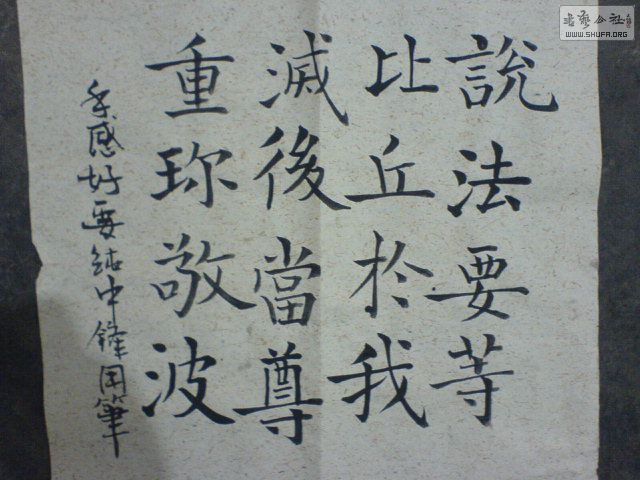 說法要等
比丘於我
滅後當尊
重珎敬波
手感好要純中鋒用筆
書藝公社
WWW.SHUFA.ORG